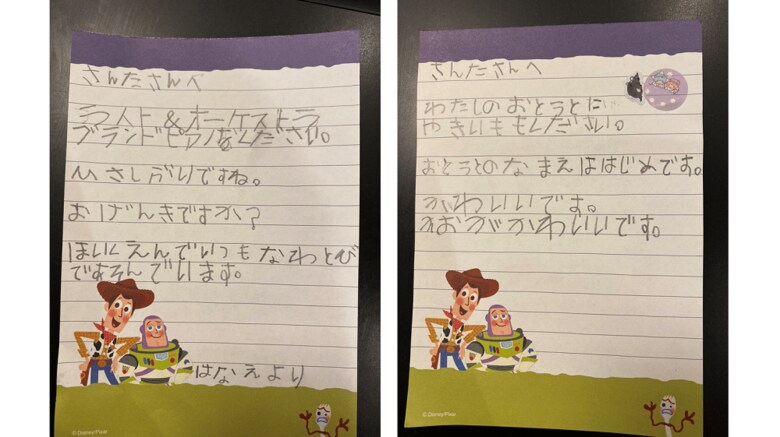 さんたさんへ
ライト&オーケストラ
グランドピアノをください。
ひさしぶりですね。
おげんきですか?
ほいくえんでいつもなわとび
であそんでいます。
はなえより
© Disney/Pixar
さんたさんへ
わたしのおとうとに
やきいもをください。
おとうとのなまえははじめです。
かわいいです。
かおがかわいいです。
© Disney/Pixar